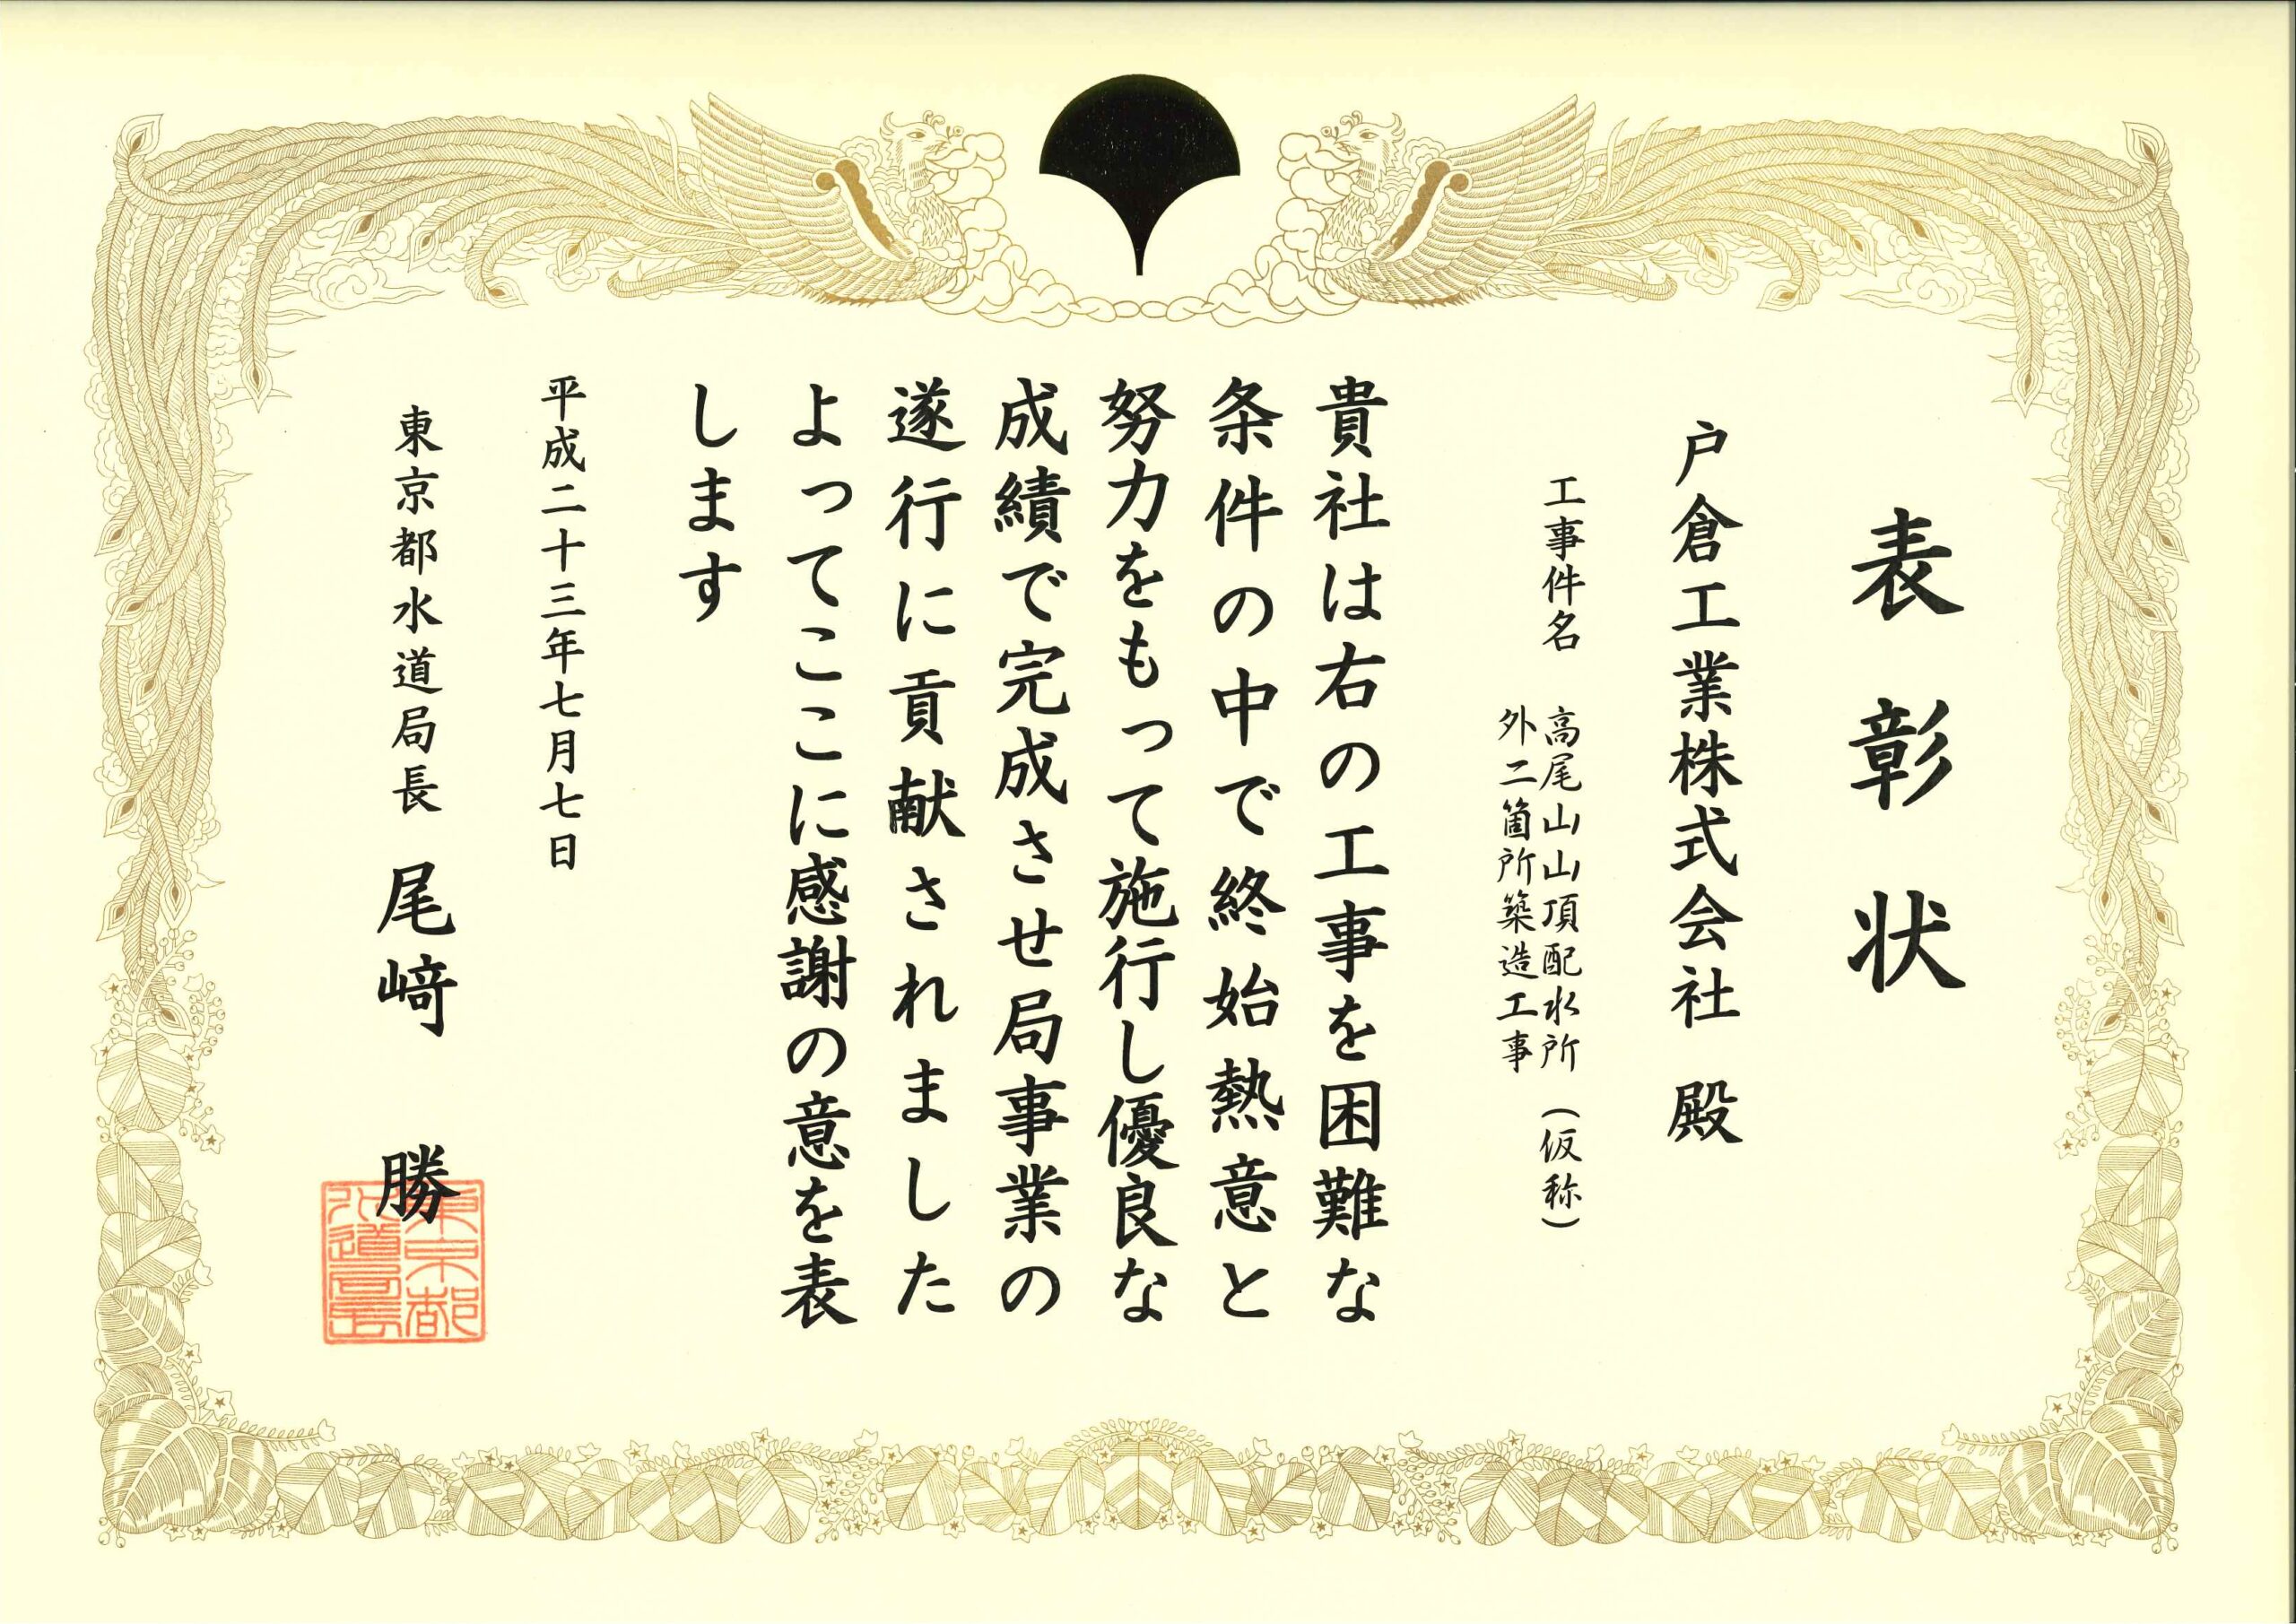 表彰状
戸倉工業株式会社 殿
工事件名 高尾山山頂配水所(仮称)
外二箇所築造工事
貴社は右の工事を困難な
条件の中で終始熱意と
努力をもって施行し優良な
成績で完成させ局事業の
遂行に貢献されました
よってここに感謝の意を表
します
平成二十三年七月七日
東京都水道局長 尾﨑 勝
東京都
水道局長